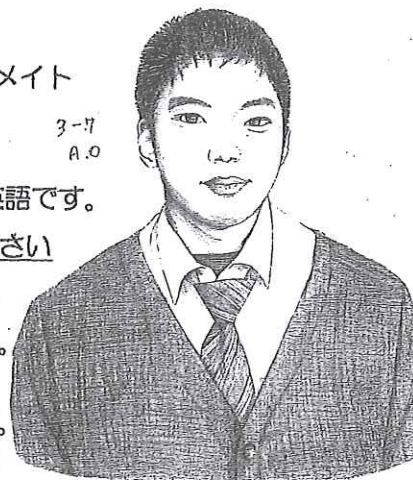 メイト
3-7
A.O
語です。
さい
。
。